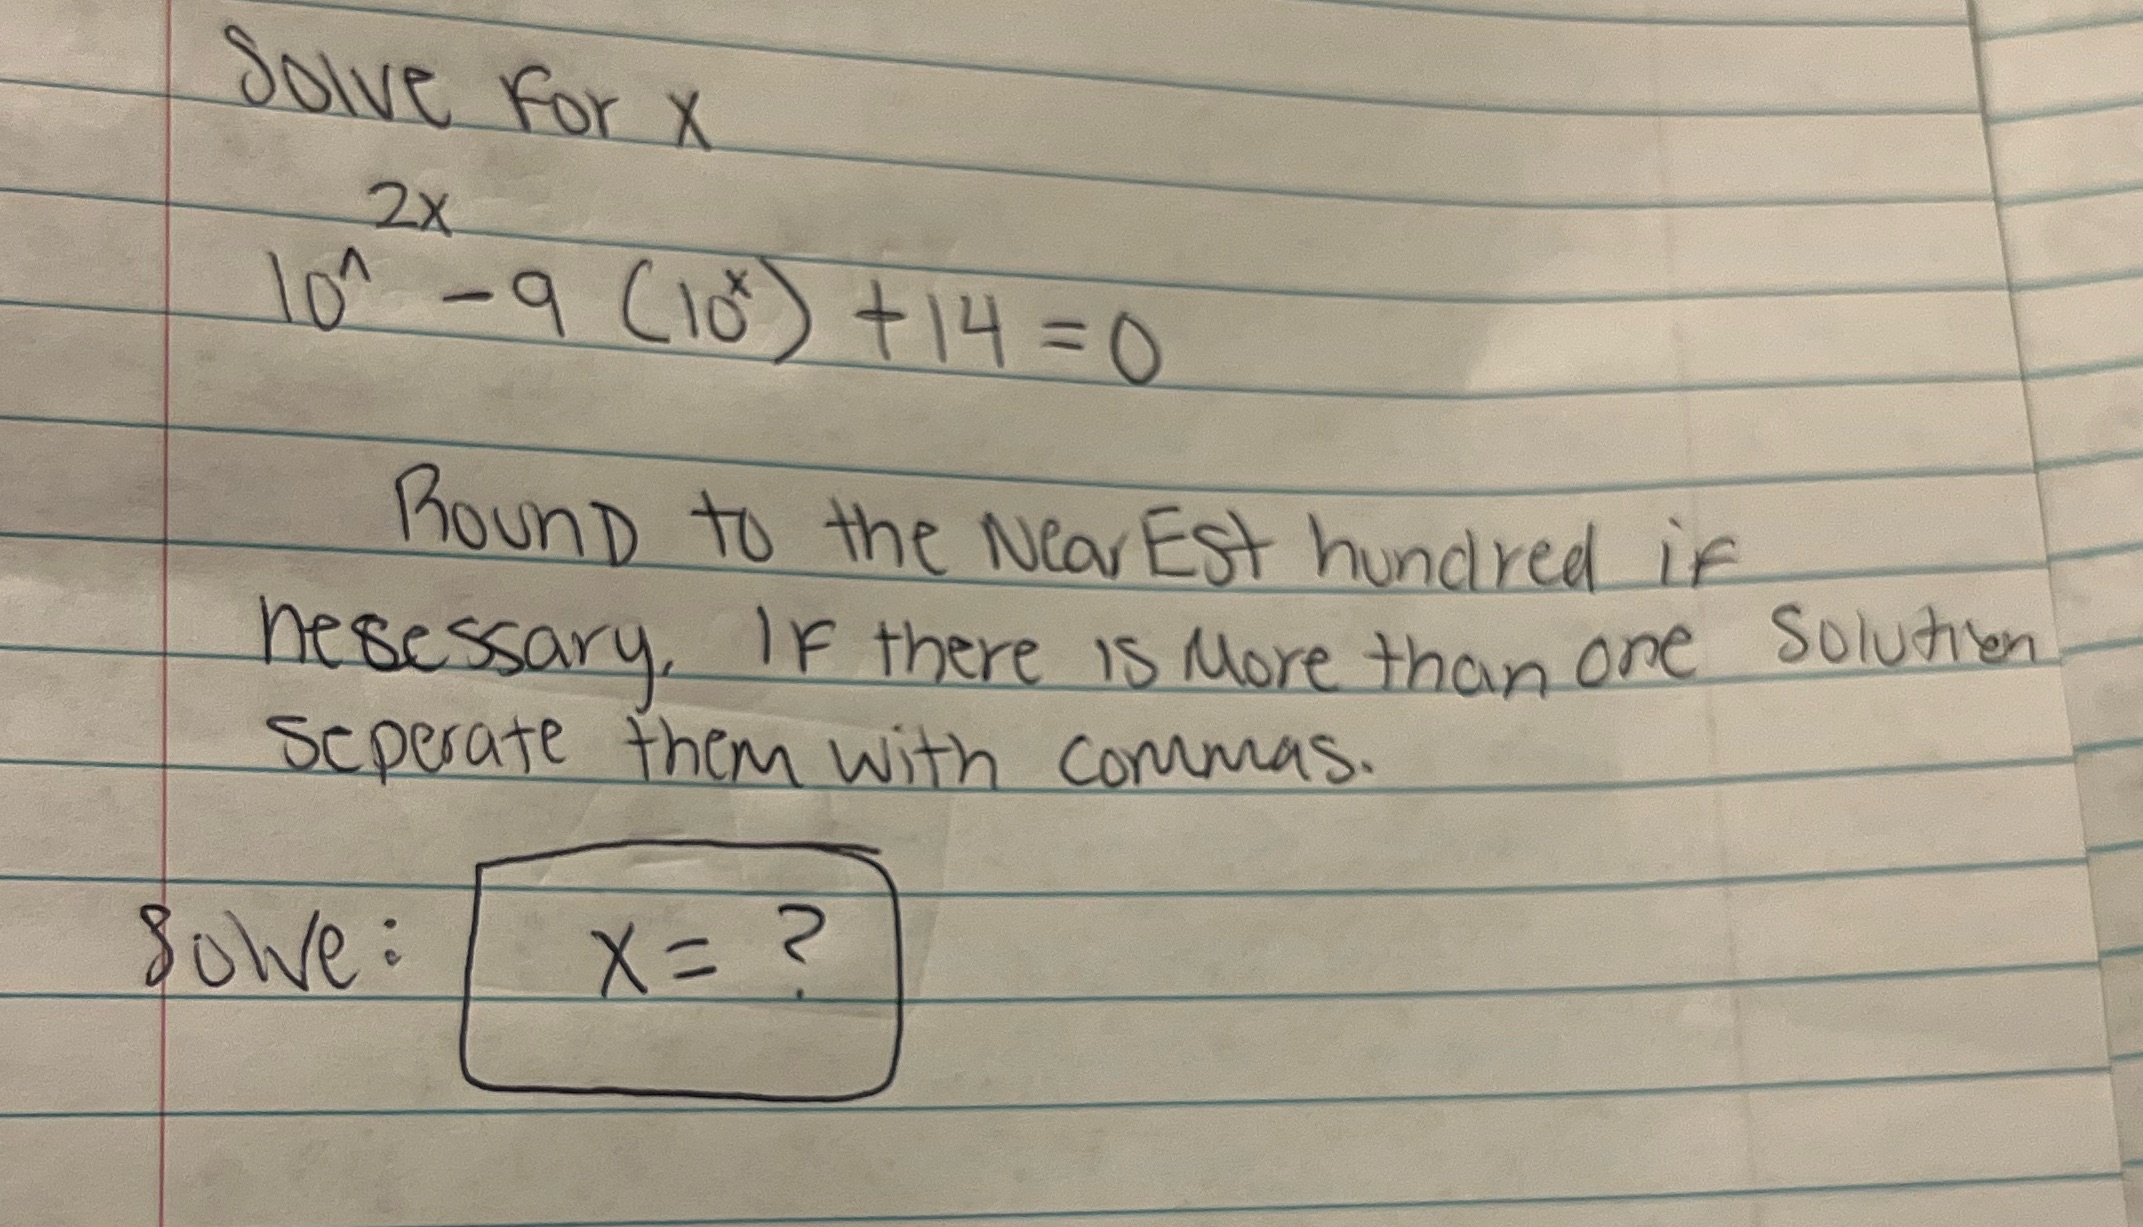 Solve For x
2x
10^ - 9 (10^x) + 14 = 0
Round to the NearEst hundred if
nesessary. If there is More than one Solution
seperate them with commas.
Solve: x = ?